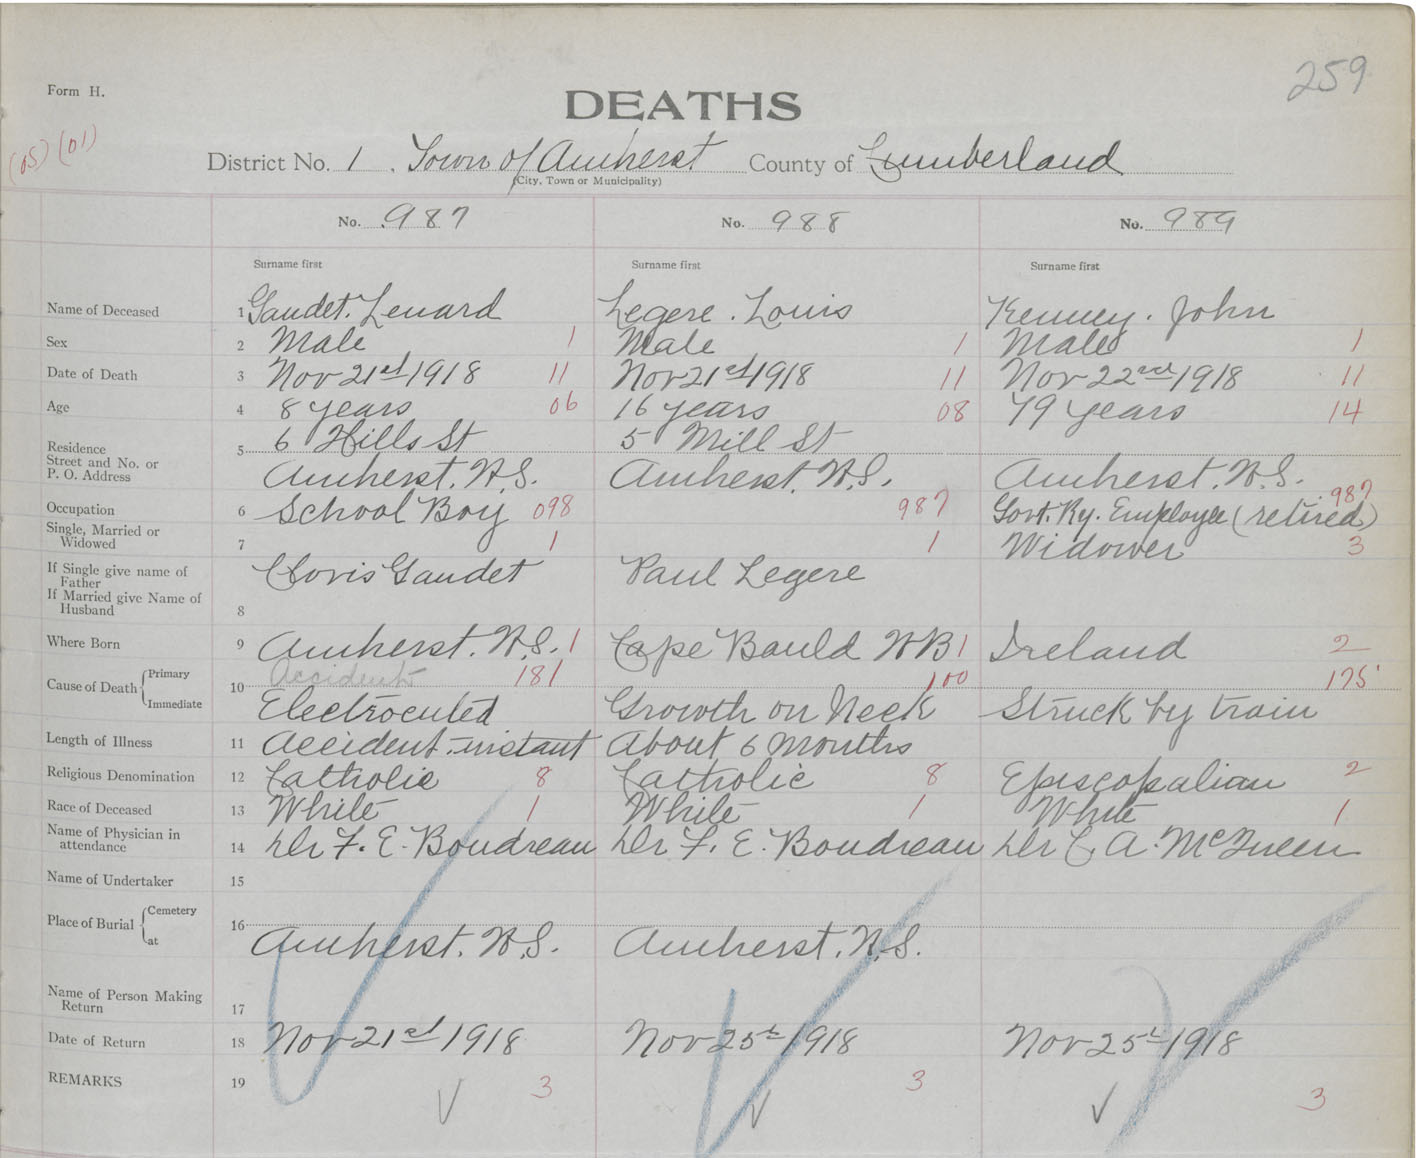 259
Form H.
DEATHS
(05) (01)
District No. 1. Town of Amherst County of Cumberland
(City, Town or Municipality)
No. 987 No. 988 No. 989
Surname first Surname first Surname first
Name of Deceased 1 Gaudet. Lenard Legere. Louis Kenney. John
Sex 2 Male 1 Male 1 Male 1
Date of Death 3 Nov 21st 1918 11 Nov 21st 1918 11 Nov 22nd 1918 11
Age 4 8 years 06 16 years 08 79 years 14
Residence 5 6 Hills St 5 Mill St
Street and No. or
P. O. Address Amherst. N.S. Amherst. N.S. Amherst. N.S.
Occupation 6 School Boy 098 987 Govt. Ry. Employee (retired) 987
Single, Married or
Widowed 7 1 1 Widower 3
If Single give name of
Father Clovis Gaudet Paul Legere
If Married give Name of
Husband 8
Where Born 9 Amherst. N.S. 1 Cape Bauld NB 1 Ireland 2
Cause of Death Primary 10 Accident 181 100 175
Immediate Electrocuted Growth on Neck Struck by train
Length of Illness 11 Accident-instant About 6 Months
Religious Denomination 12 Catholic 8 Catholic 8 Episcopalian 2
Race of Deceased 13 White 1 White 1 White 1
Name of Physician in
attendance 14 Dr F. E. Boudreau Dr F. E. Boudreau Dr C A. McQueen
Name of Undertaker 15
Place of Burial Cemetery 16
at Amherst. N.S. Amherst. N.S.
Name of Person Making
Return 17
Date of Return 18 Nov 21st 1918 Nov 25th 1918 Nov 25th 1918
REMARKS 19 3 3 3